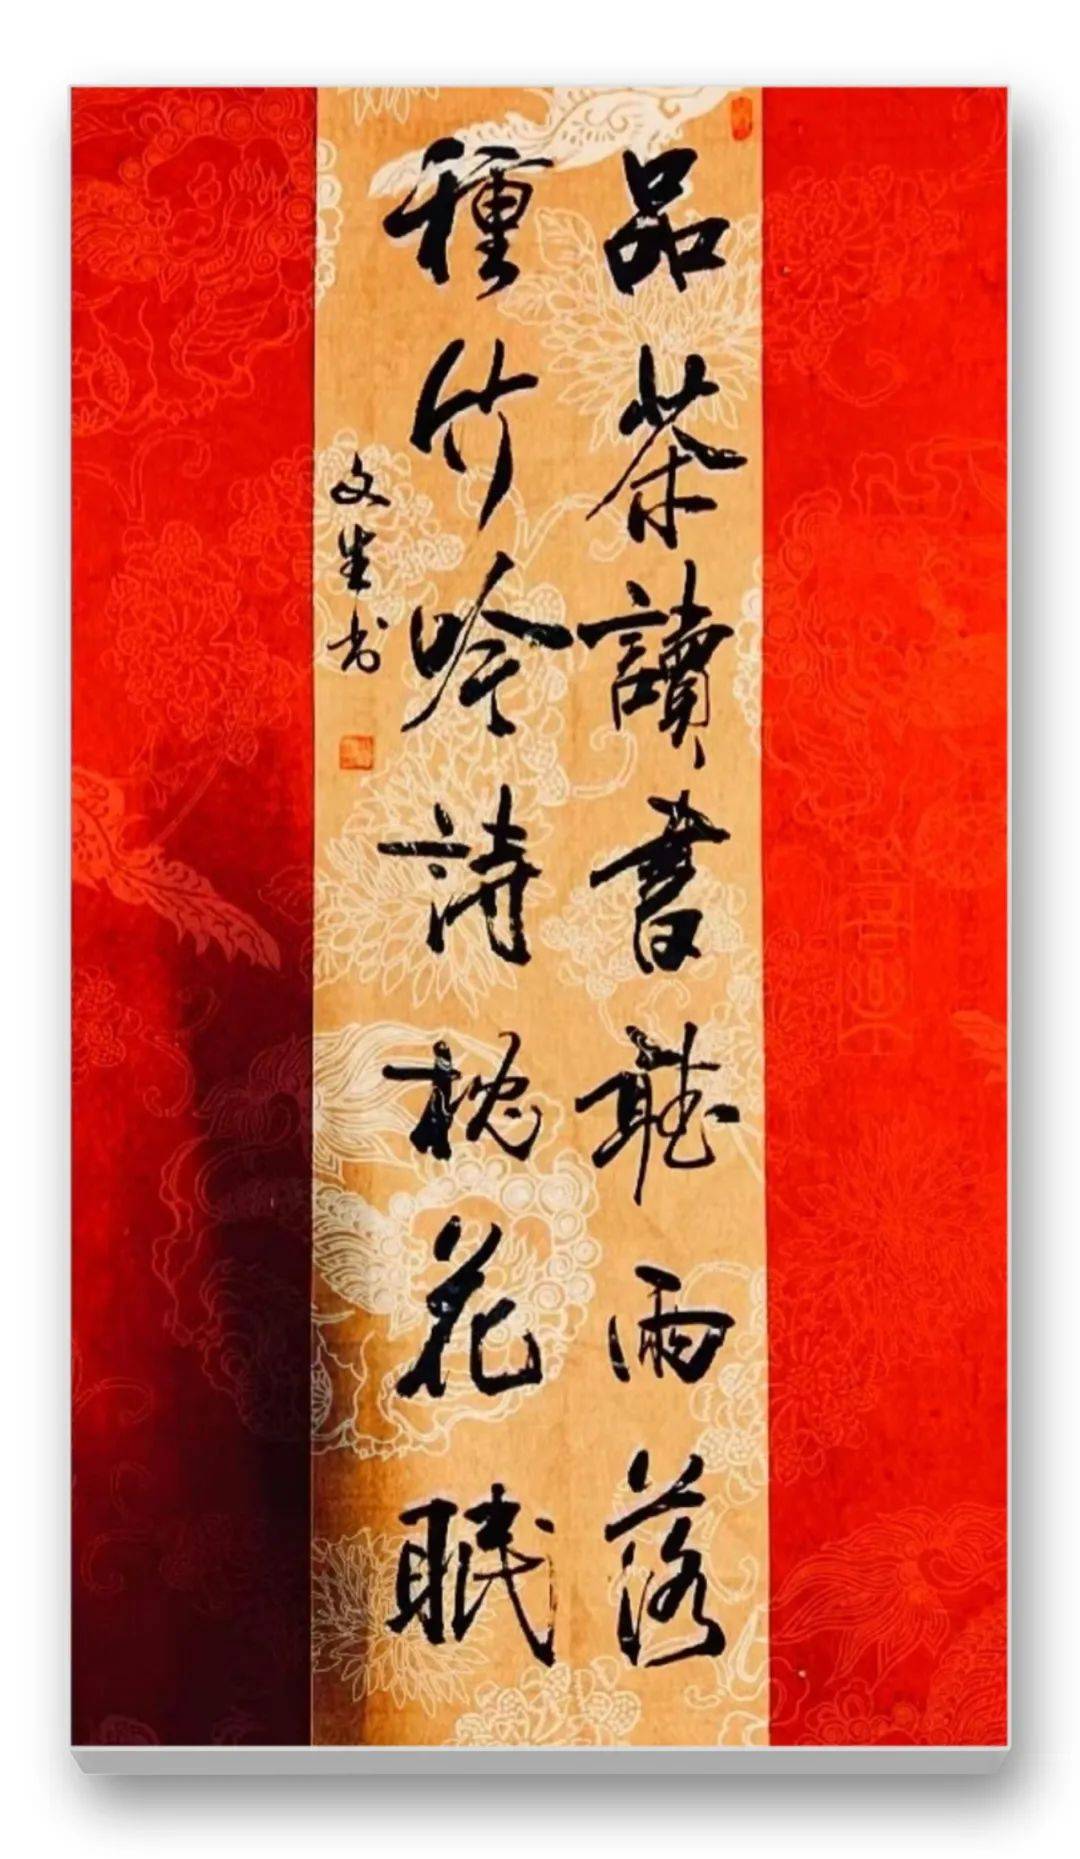 品茶讀書聽雨落
種竹吟詩枕花眠
文生书